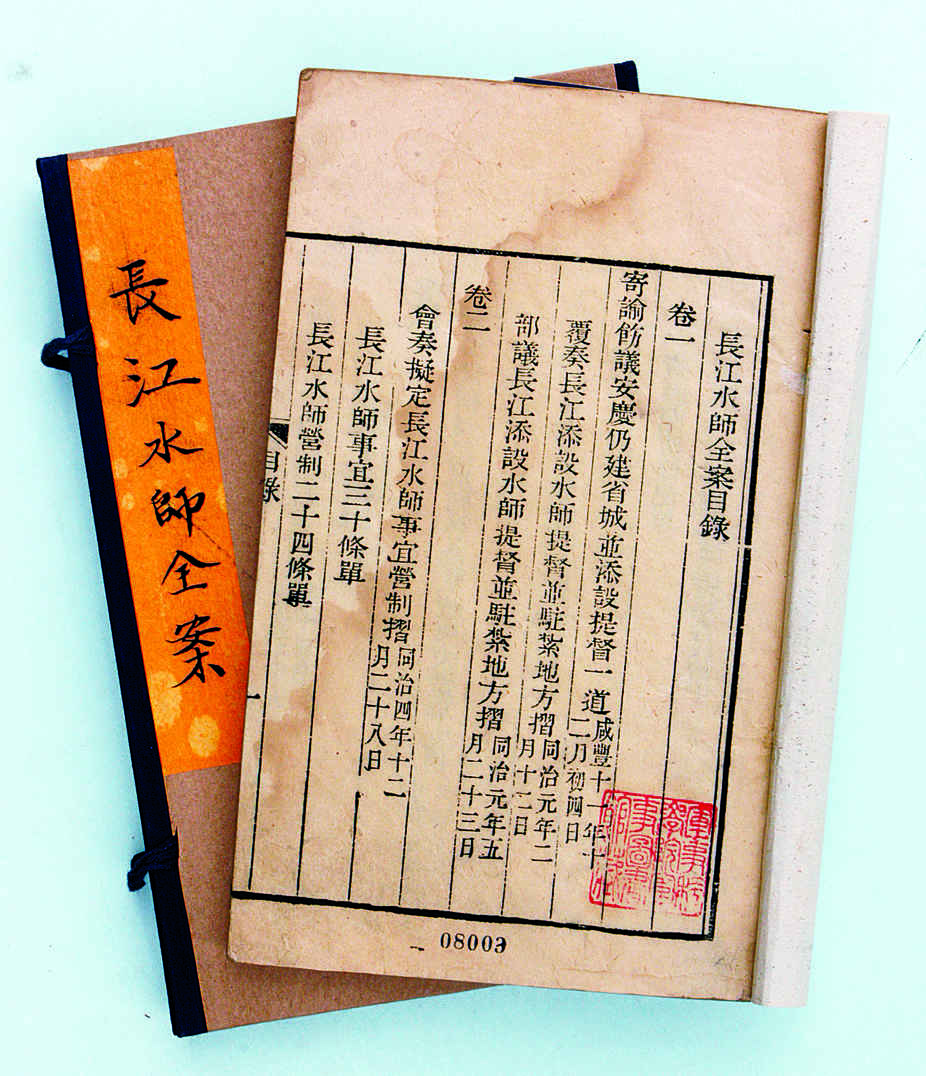 長江水師全案
長江水師全案目錄
卷一
寄諭飭議安慶仍建省城並添設提督一道咸豐十一年十二月初四日
覆奏長江添設水師提督並駐紮地方摺同治元年二月十二日
部議長江添設水師提督並駐紮地方摺同治元年五月二十三日
卷二
會奏擬定長江水師事宜營制摺同治四年十二月二十八日
長江水師事宜三十條單
長江水師營制二十四條單
目錄 一
08003